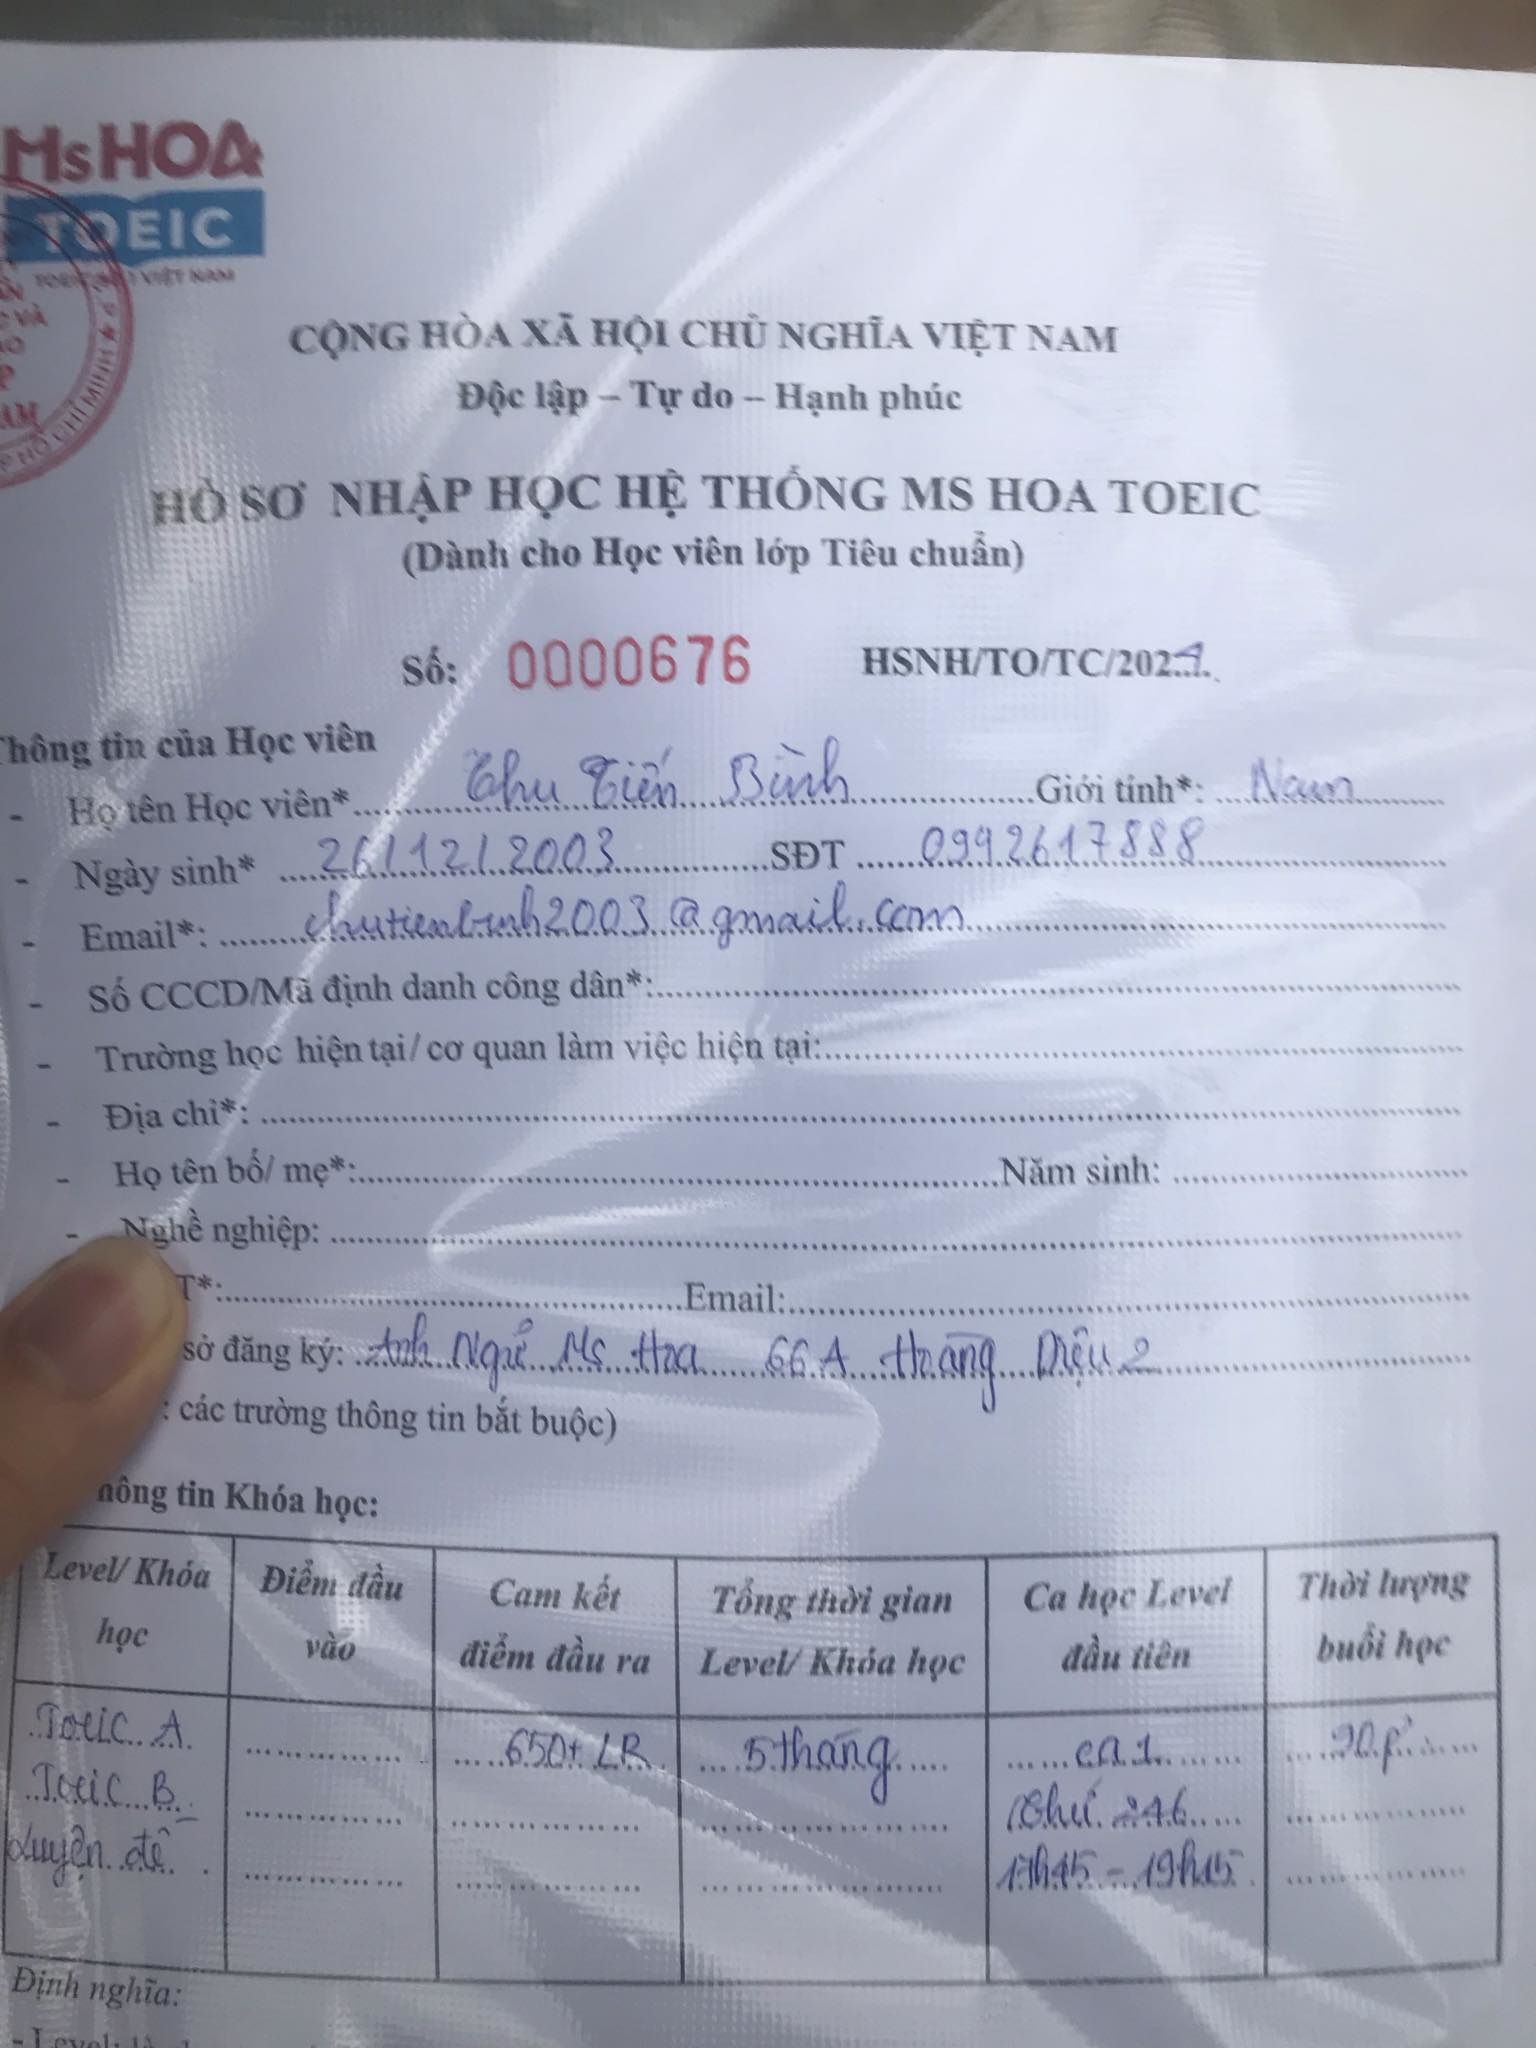 Ms HOA
TOEIC
VIỆT NAM
CỘNG HÒA XÃ HỘI CHỦ NGHĨA VIỆT NAM
Độc lập – Tự do – Hạnh phúc
HỒ SƠ NHẬP HỌC HỆ THỐNG MS HOA TOEIC
(Dành cho Học viên lớp Tiêu chuẩn)
Số: 0000676 HSNH/TO/TC/2024
Thông tin của Học viên
- Họ tên Học viên* Chu Tiến Bình Giới tính*: Nam
- Ngày sinh* 26/12/2003 SĐT 0942617888
- Email*: chutienbinh2003@gmail.com
- Số CCCD/Mã định danh công dân*:
- Trường học hiện tại/ cơ quan làm việc hiện tại:
- Địa chỉ*:
- Họ tên bố/ mẹ*: Năm sinh:
- Nghề nghiệp:
T*: Email:
sở đăng ký: Anh Ngữ Ms Hoa 66A Hoàng Diệu 2
: các trường thông tin bắt buộc)
hông tin Khóa học:
Level/ Khóa học Điểm đầu vào Cam kết điểm đầu ra Tổng thời gian Level/ Khóa học Ca học Level đầu tiên Thời lượng buổi học
Toeic A 650+ LR 5 tháng ca 1 90p'
Toeic B (Thứ 246
Luyện đề 17h45 - 19h15
Định nghĩa:
- Level: là